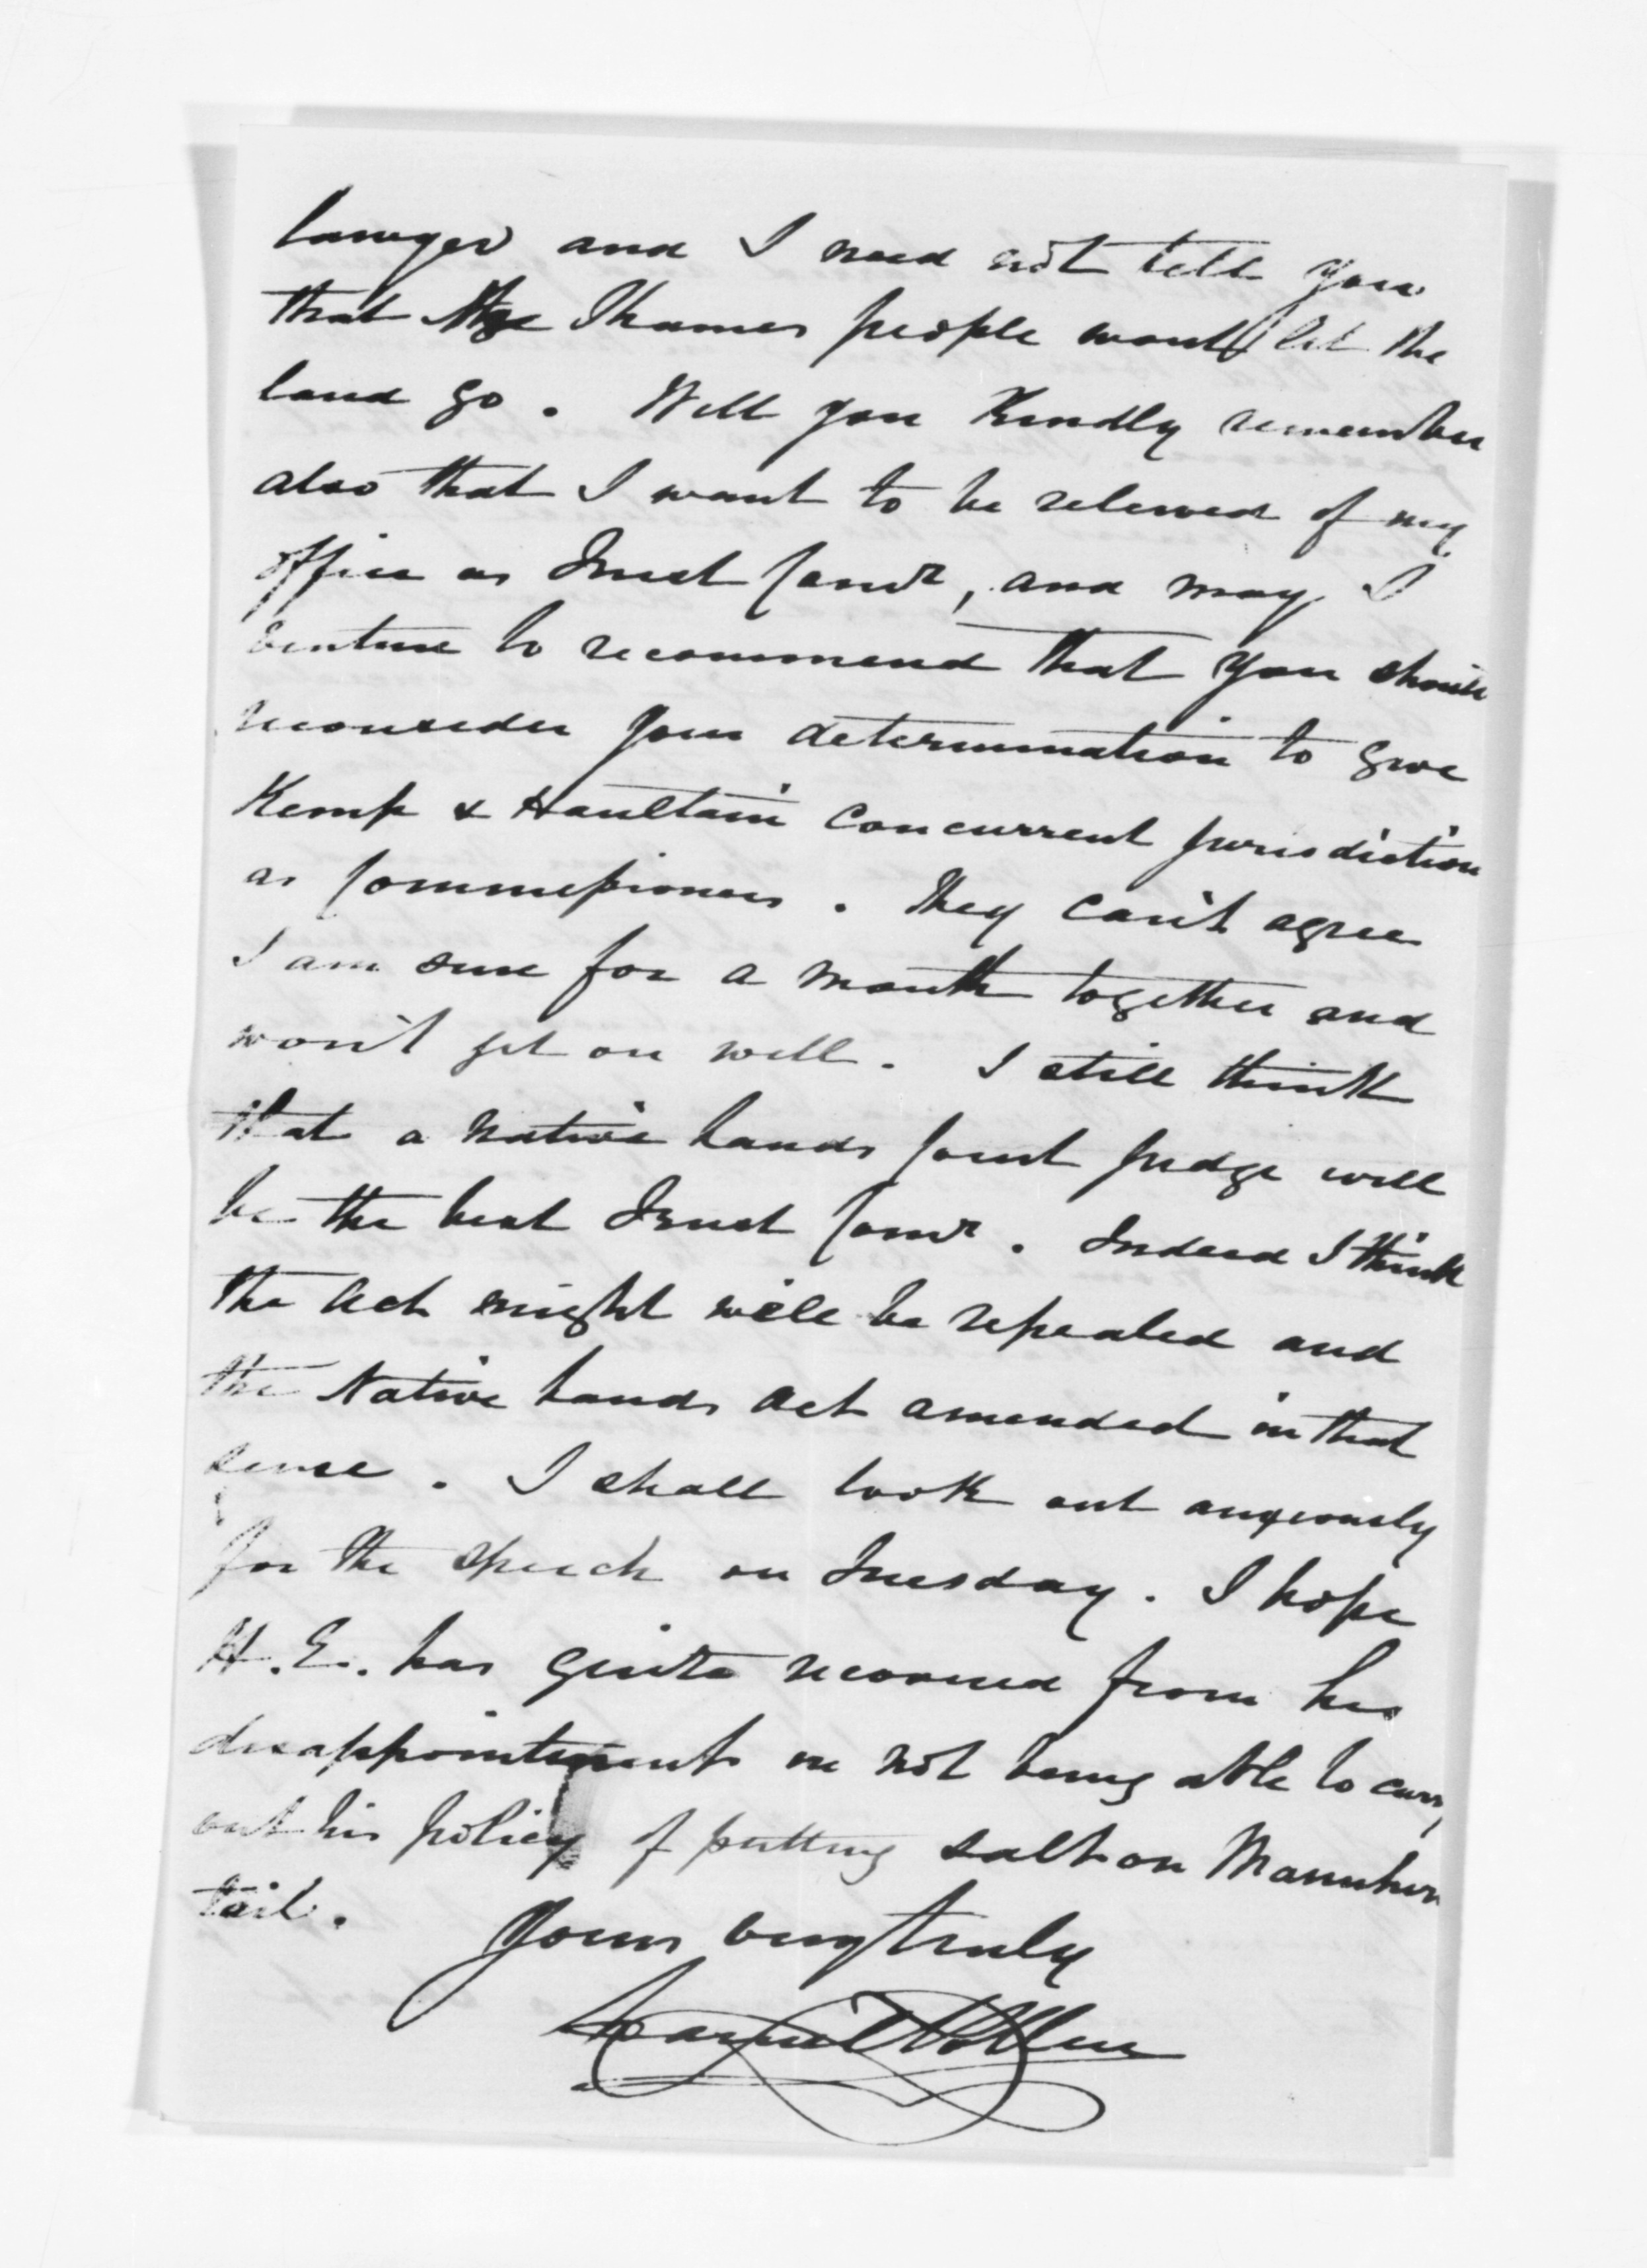 lawyer and I need not tell you
that the Thames people wont let the
land go. Will you Kindly remember
also that I want to be relieved of my
office as Trust Comr, and may I
venture to recommend that you should
reconsider your determination to give
Kemp & Haultain concurrent jurisdiction
as Commissioners. They can't agree
I am sure for a month together and
won't get on well. I still think
that a native Lands Court judge will
be the best Trust Comr. Indeed I think
the Act might well be repealed and
the Native Lands Act amended in that
sense. I shall look out anxiously
for the speech on Tuesday. I hope
H.E. has quite recovered from his
disappointment in not being able to carry
out his policy of putting salt on
tail.
Yours very truly
Daniel Pollen